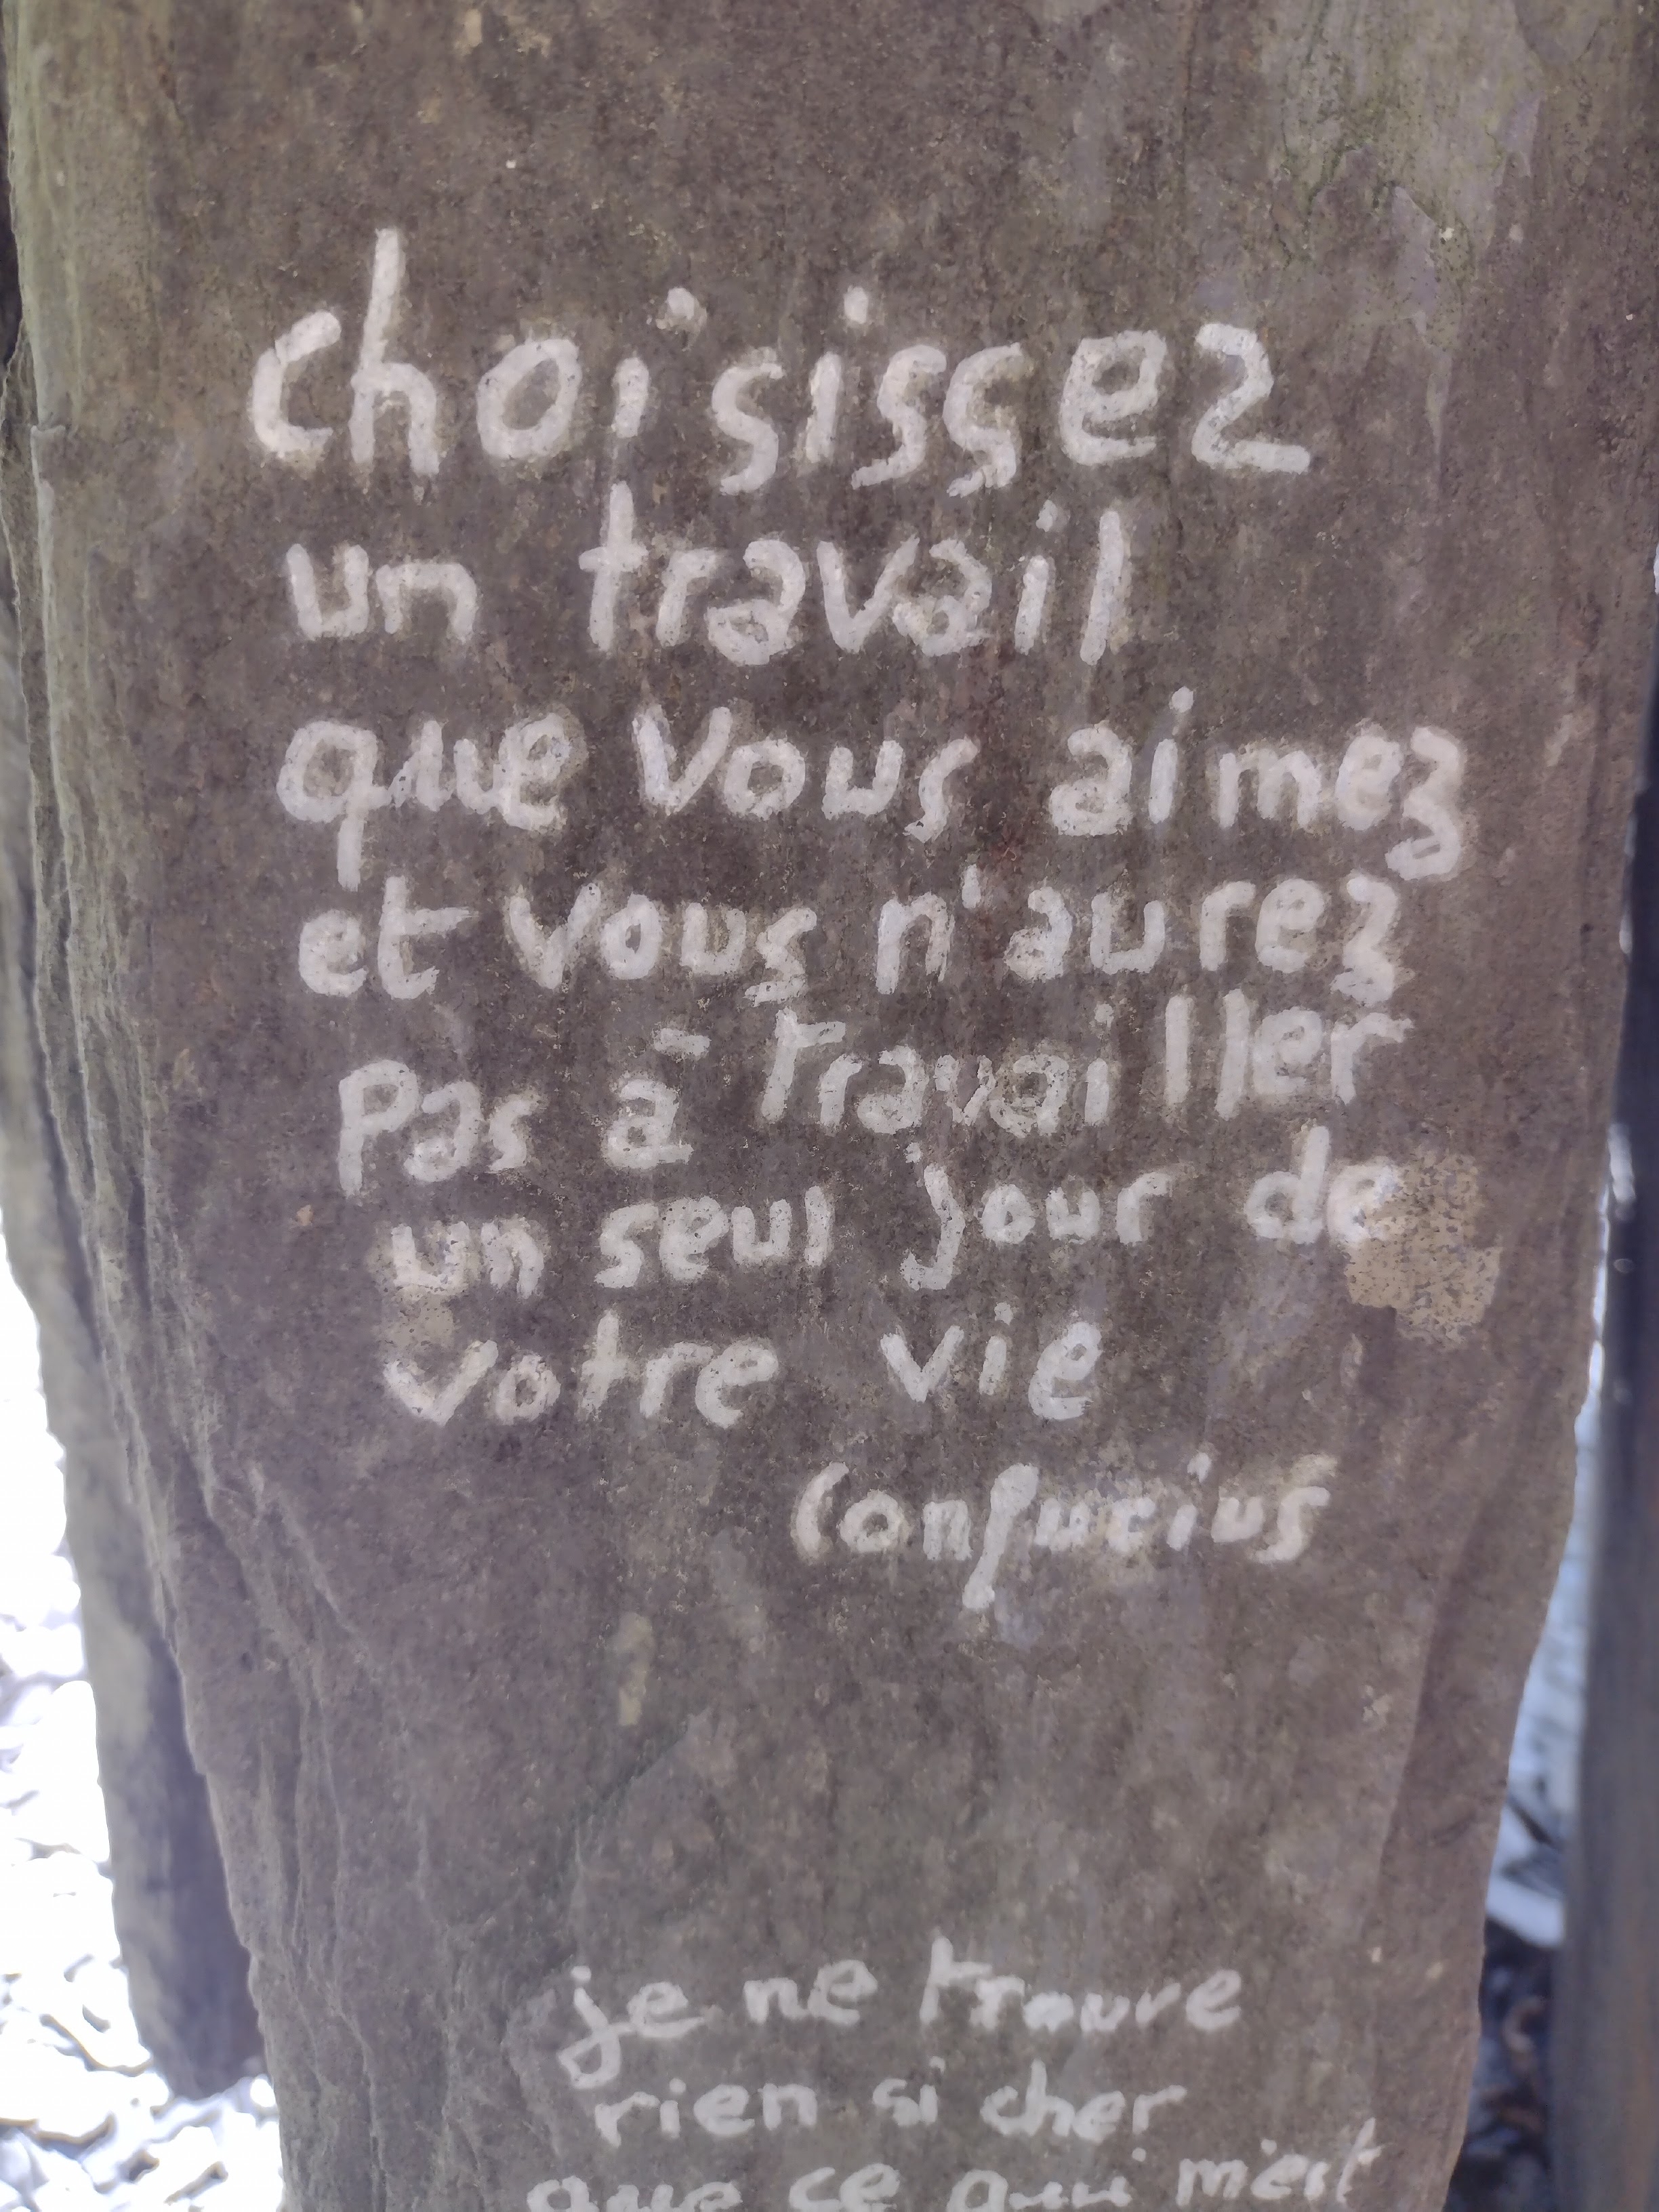 choisissez
un travail
que vous aimez
et vous n'aurez
Pas à travailler
un seul jour de
votre vie
Confucius
je ne trouve
rien si cher
que ce qui m'est